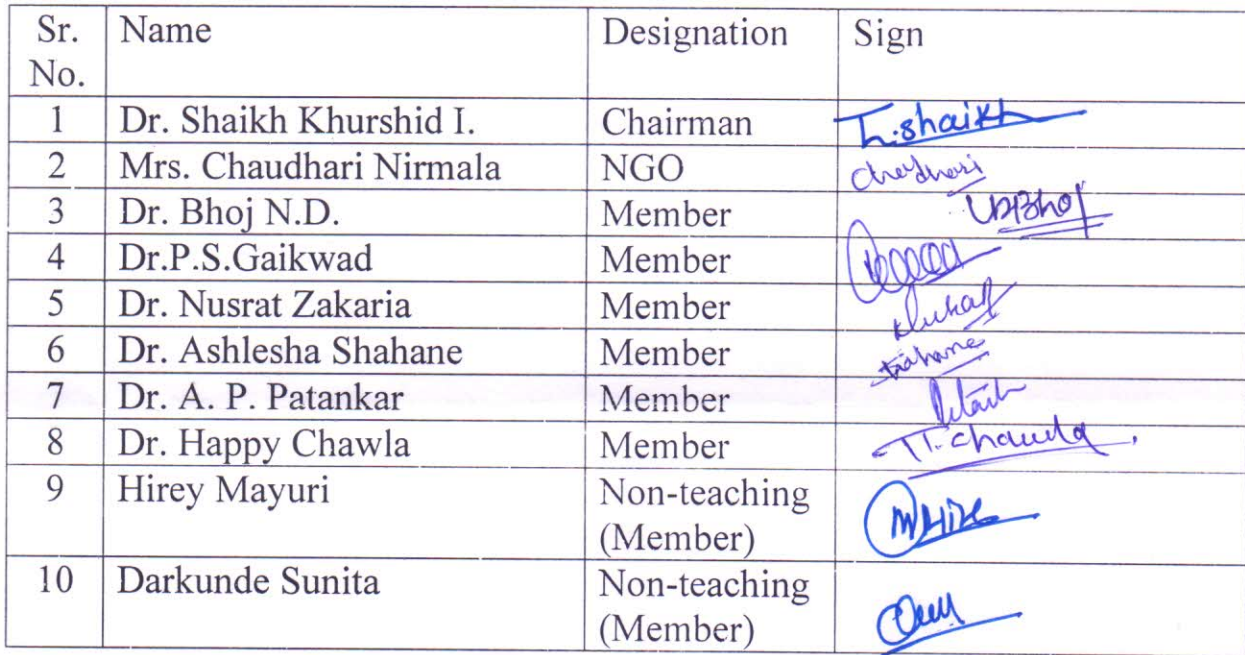 Sr. No. Name Designation Sign
1 Dr. Shaikh Khurshid I. Chairman h.shaikh
2 Mrs. Chaudhari Nirmala NGO Chaudhari
3 Dr. Bhoj N.D. Member NDBhoj
4 Dr.P.S.Gaikwad Member
5 Dr. Nusrat Zakaria Member
6 Dr. Ashlesha Shahane Member
7 Dr. A. P. Patankar Member
8 Dr. Happy Chawla Member H.Chawla
9 Hirey Mayuri Non-teaching (Member)
10 Darkunde Sunita Non-teaching (Member)